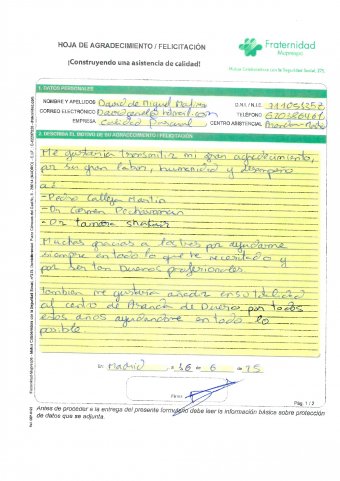 HOJA DE AGRADECIMIENTO / FELICITACIÓN
¡Construyendo una asistencia de calidad!
Fraternidad
Muprespa
Mutua Colaboradora con la Seguridad Social, 275
1. DATOS PERSONALES
NOMBRE Y APELLIDOS David de Miguel
D.N.I. / N.I.E.
CORREO ELECTRÓNICO
TELÉFONO
EMPRESA
CENTRO ASISTENCIAL
2. DESCRIBA EL MOTIVO DE SU AGRADECIMIENTO / FELICITACIÓN
Me gustaría transmitir mi gran agradecimiento,
por su gran labor, humanidad y desempeño
a:
- Pedro Calleja Martin
- Dr Carmen
- Dr tamara
Muchas gracias a todos por ayudarme
siempre en todo lo que he necesitado y
por ser tan buenos profesionales.
tambien me gustaría añadir en su totalidad
al centro de Aranda de Duero, por todos
estos años ayudandome en todo lo
posible.
En Madrid, a 16 - 6 -
Firma:
Pág. 1 / 2
Antes de proceder a la entrega del presente formulario debe leer la información básica sobre protección
de datos que se adjunta.